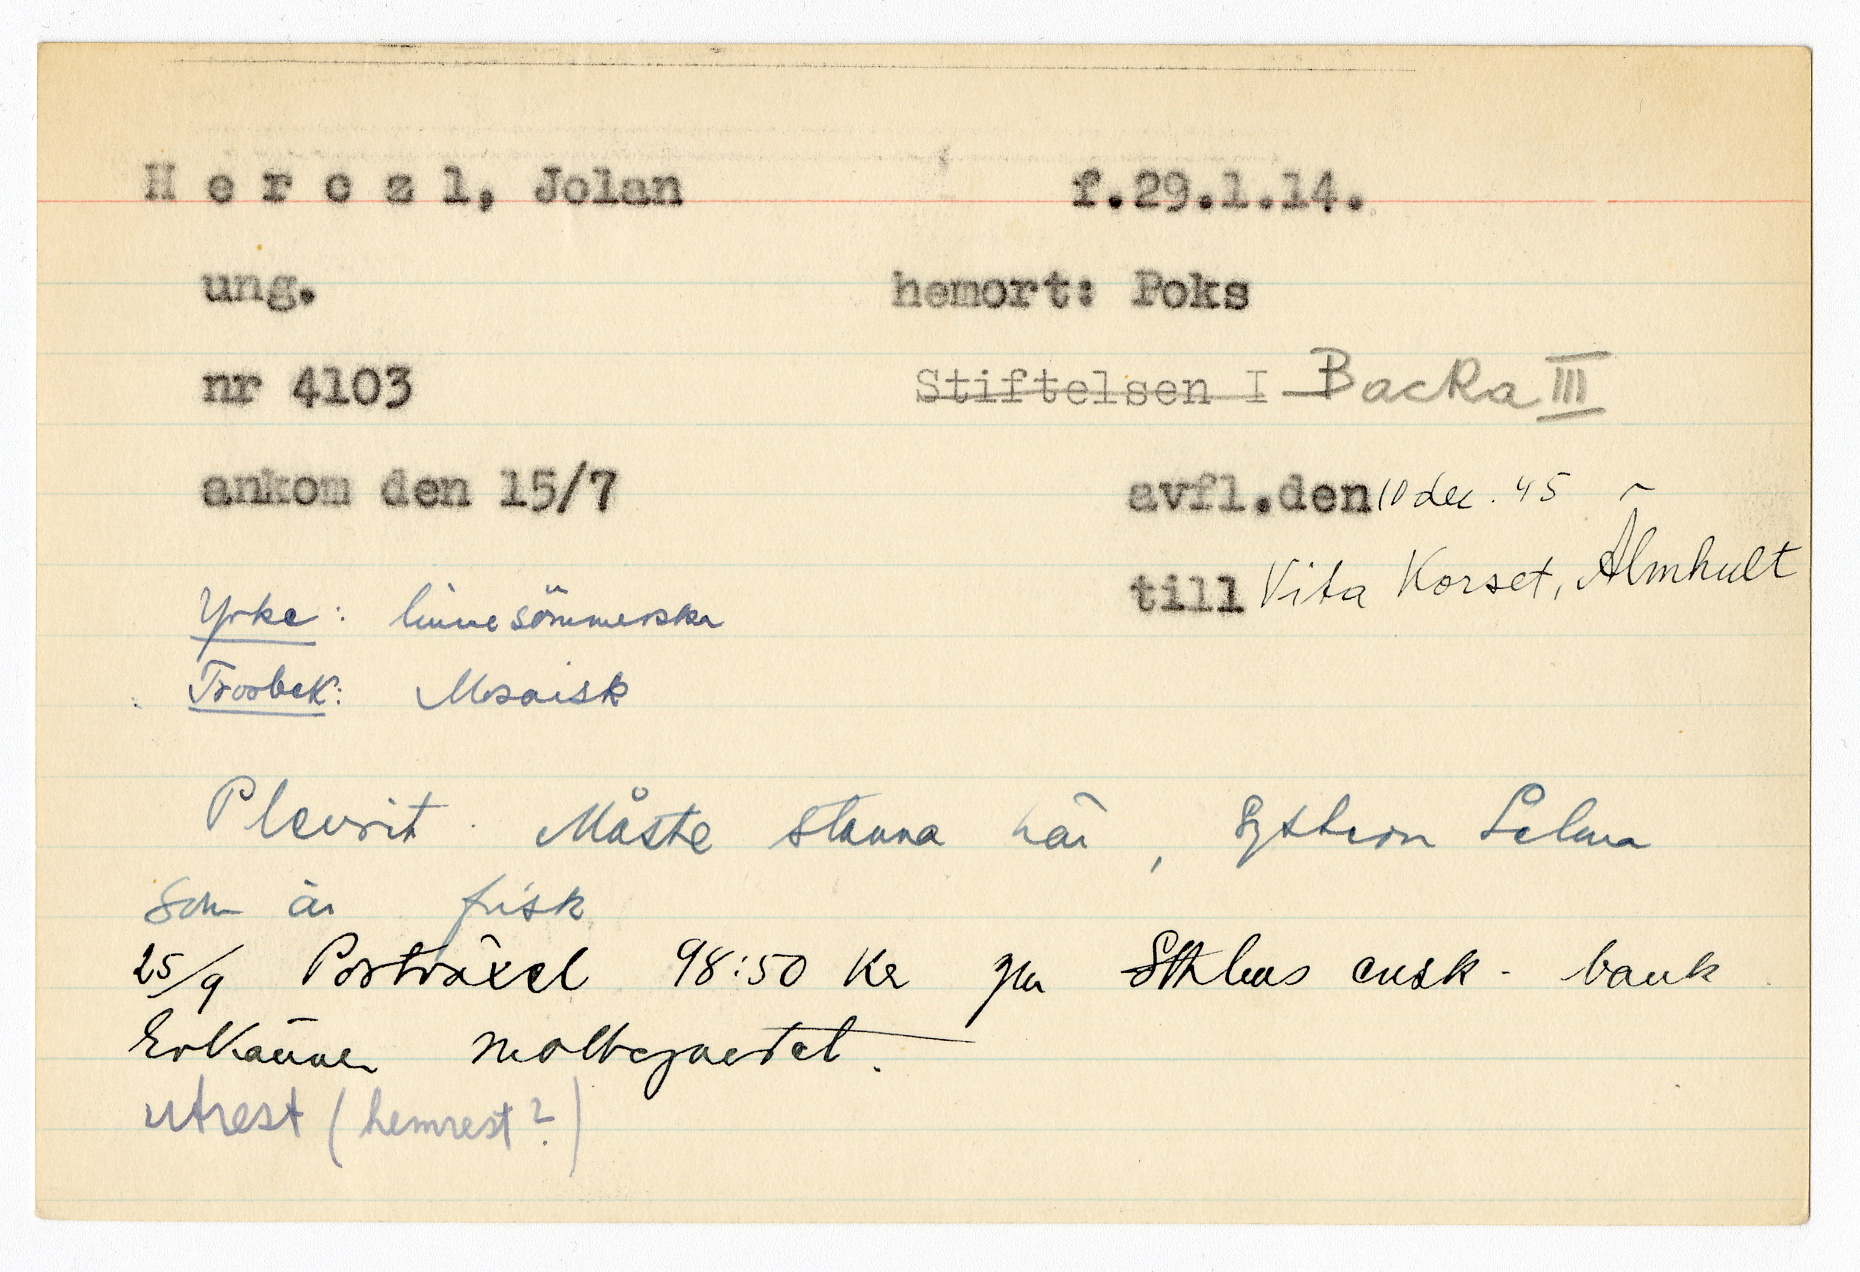 H e r c z l, Jolan f.29.1.14.
ung. hemort: Poks
nr 4103 Stiftelsen I Backa III
ankom den 15/7 avfl.den 10 dec. 45
till Vita Korset, Älmhult
Yrke: linnesömmerska
Trosbek: Mosaisk
Plevrit. Måste stanna här, Systern Selma
som är frisk
25/9 Postväxel 98:50 Kr på Sthlms ensk. bank
Erkänner mottagandet.
utrest (hemrest?)